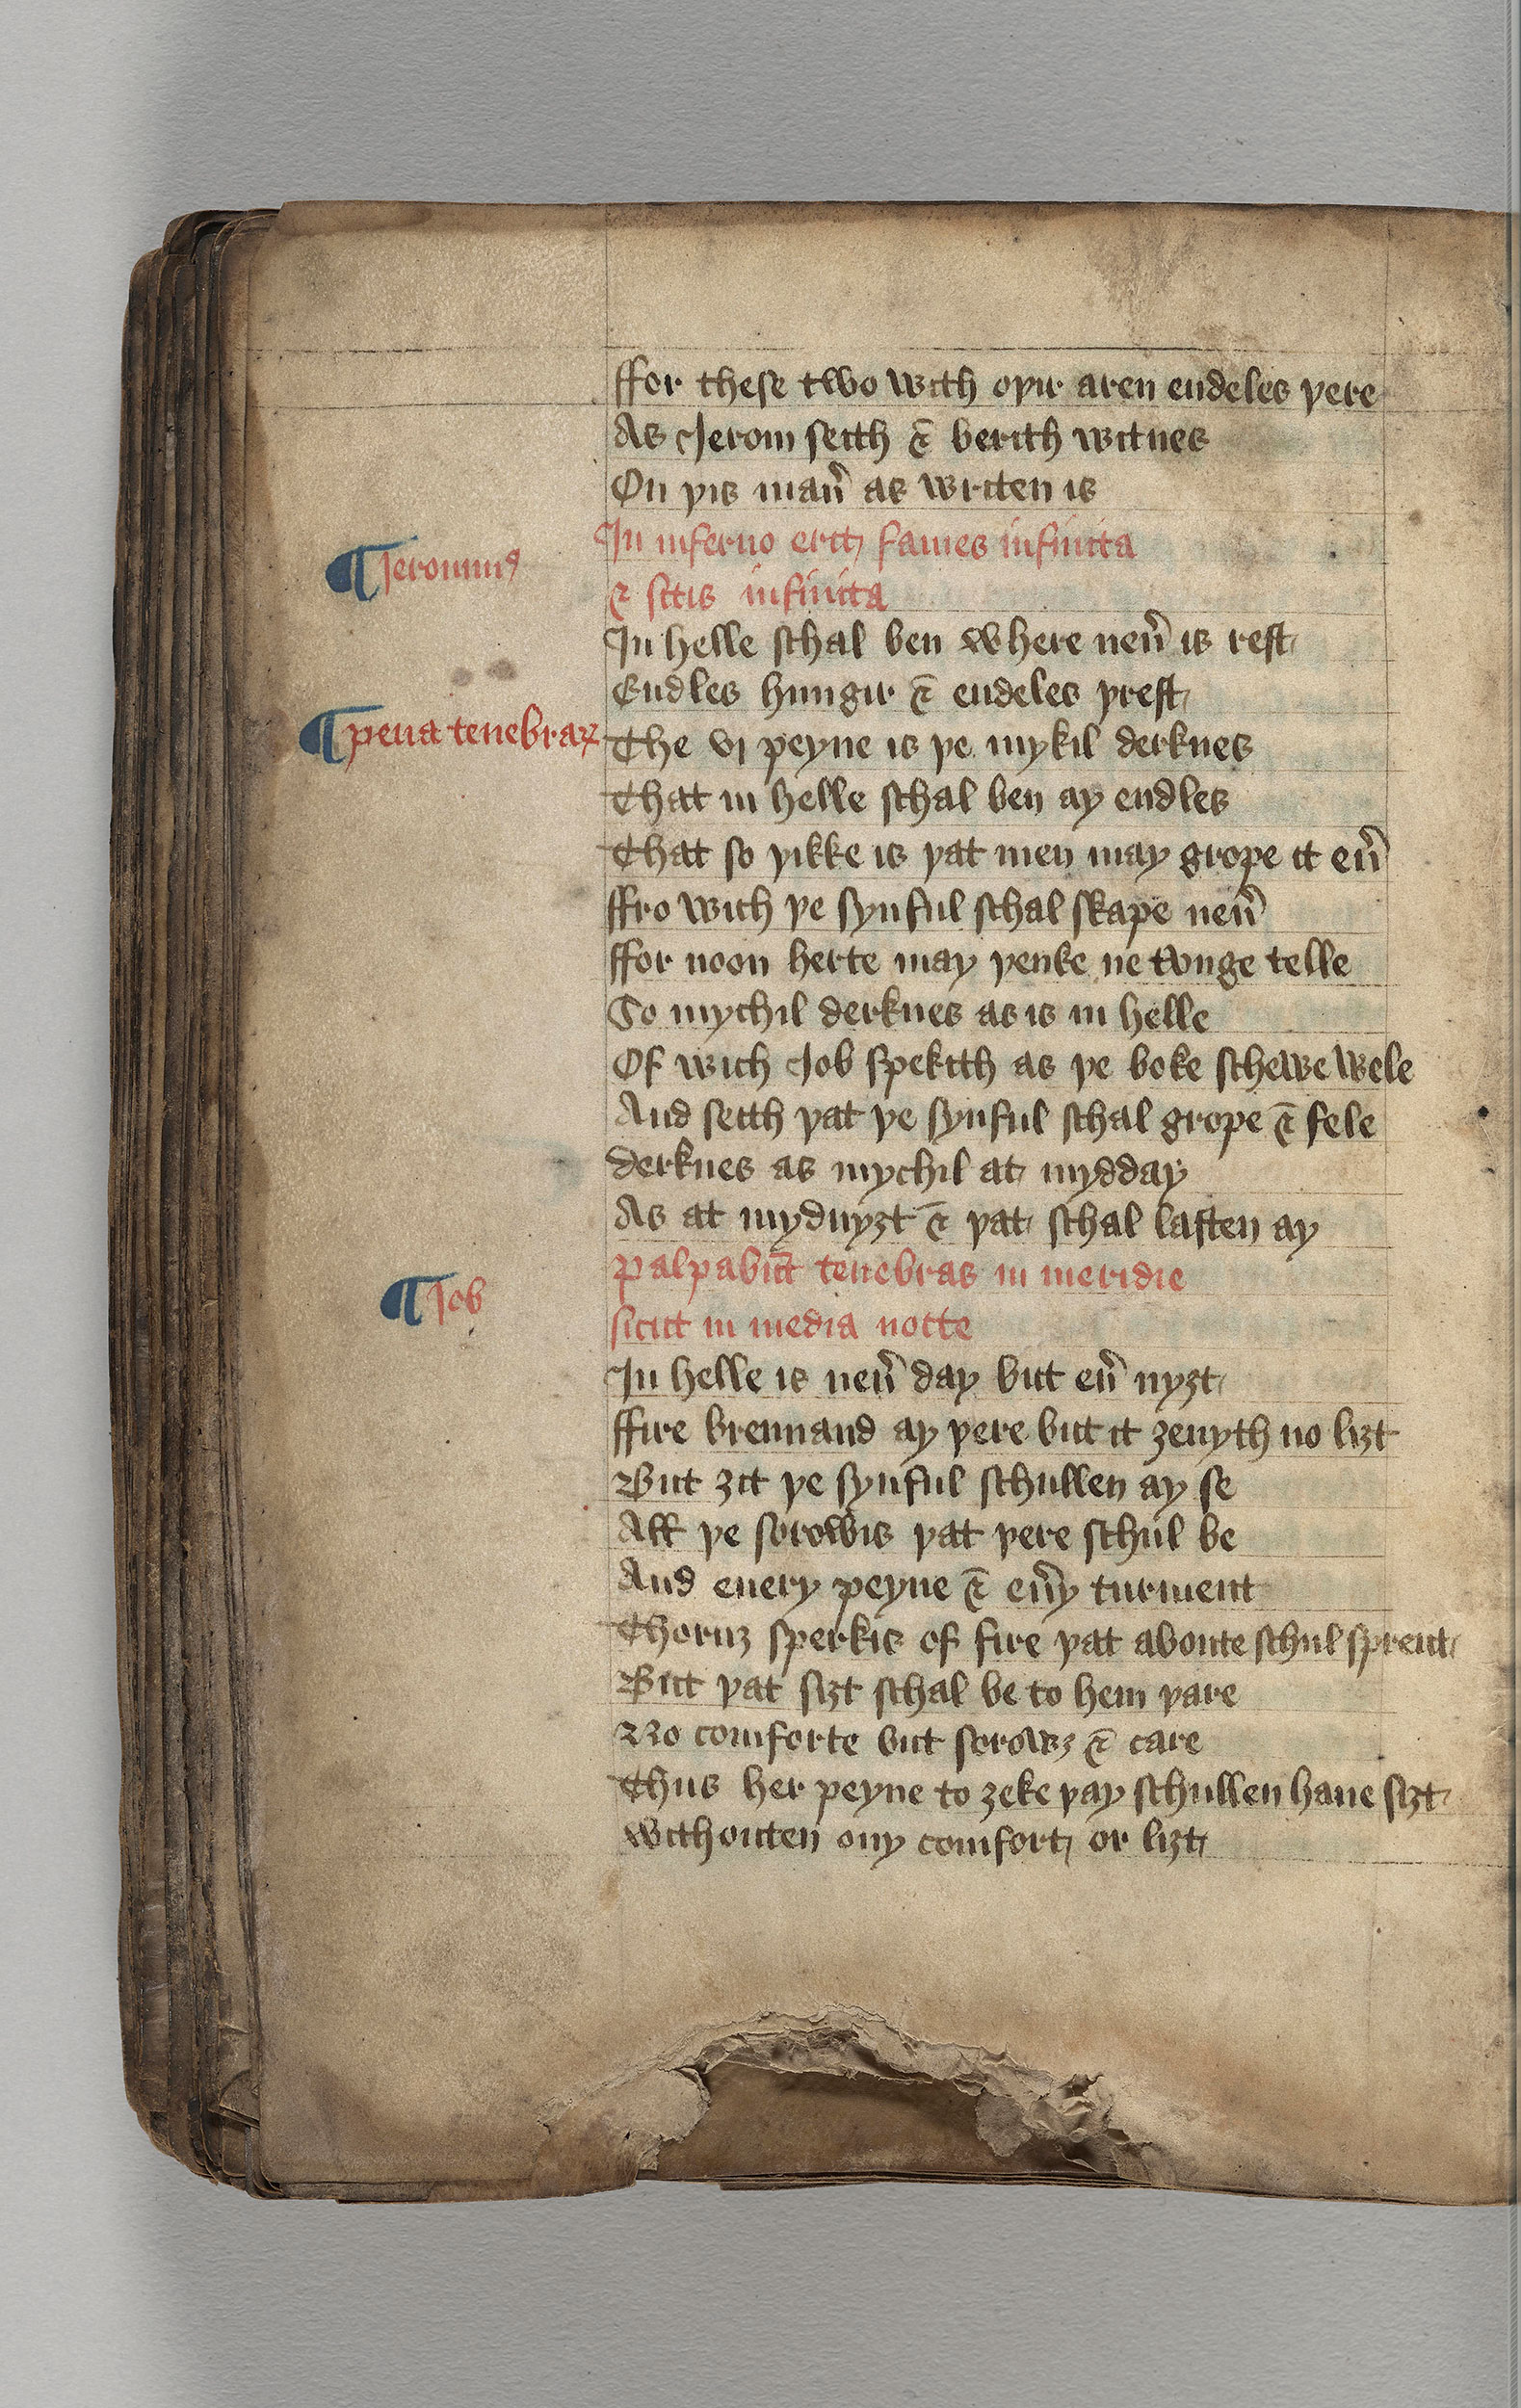 ffor these two with oþir aren endeles þere
As Jerom seith ⁊ berith witnes
On þis man̉ as writen is
In inferno erit fames infinita
¶ Jeronimꝰ
⁊ sitis infinita
In helle schal ben where neủ is rest
Endles hungir ⁊ endeles þrest
¶ pena tenebraꝝ
The vj peyne is þe mykil derknes
That in helle schal ben ay endles
That so þikke is þat men may grope it eủ
ffro wich þe synful schal skape neủ
ffor noon herte may þenke ne tonge telle
So mychil derknes as is in helle
Of wich Job spekith as þe boke schewe wele
And seith þat þe synful schal grope ⁊ fele
derknes as mychil at mydday
As at mydnyȝt ⁊ þat schal lasten ay
Palpabūt tenebras in meridie
¶ Job
sicut in media nocte
In helle is neủ day but eủ nyȝt
ffire brennand ay þere but it ȝeuyth no liȝt
But ȝit þe synful schullen ay se
All þe sorowis þat þere schul be
And euery peyne ⁊ eủy turment
Thoruȝ sperkis of fire þat aboute schul sprent
But þat siȝt schal be to hem þare
No comforte but sorowȝ ⁊ care
Thus her peyne to ȝeke þay schullen haue siȝt
withouten ony comfort or liȝt